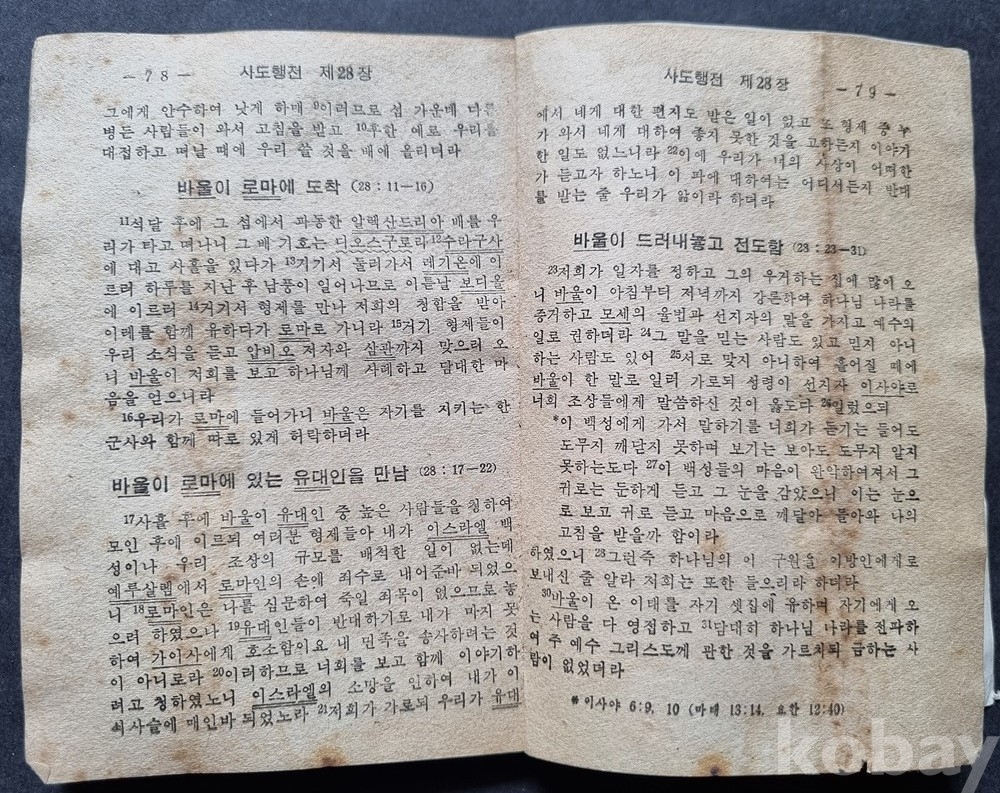 - 78 - 사도행전 제28장
그에게 안수하여 낫게 하매 9이러므로 섬 가운데 다른
병든 사람들이 와서 고침을 받고 10후한 예로 우리를
대접하고 떠날 때에 우리 쓸 것을 배에 올리더라
바울이 로마에 도착 (28:11-16)
11석달 후에 그 섬에서 과동한 알렉산드리아 배를 우
리가 타고 떠나니 그 배 기호는 디오스구로라 12수라구사
에 대고 사흘을 있다가 13거기서 둘러가서 레기온에 이
르러 하루를 지난 후 남풍이 일어나므로 이튿날 보디올
에 이르러 14거기서 형제를 만나 저희의 청함을 받아
이레를 함께 유하다가 로마로 가니라 15거기 형제들이
우리 소식을 듣고 압비오 저자와 삼관까지 맞으러 오
니 바울이 저희를 보고 하나님께 사례하고 담대한 마
음을 얻으니라
16우리가 로마에 들어가니 바울은 자기를 지키는 한
군사와 함께 따로 있게 허락하더라
바울이 로마에 있는 유대인을 만남 (28:17-22)
17사흘 후에 바울이 유대인 중 높은 사람들을 청하여
모인 후에 이르되 여러분 형제들아 내가 이스라엘 백
성이나 우리 조상의 규모를 배척한 일이 없는데
예루살렘에서 로마인의 손에 죄수로 내어준바 되었으
니 18로마인은 나를 심문하여 죽일 죄목이 없으므로 놓
으려 하였으나 19유대인들이 반대하기로 내가 마지 못
하여 가이사에게 호소함이요 내 민족을 송사하려는 것
이 아니로라 20이러하므로 너희를 보고 함께 이야기하
려고 청하였노니 이스라엘의 소망을 인하여 내가 이
쇠사슬에 매인바 되었노라 21저희가 가로되 우리가 유대
사도행전 제28장 - 79 -
에서 네게 대한 편지도 받은 일이 없고 또 형제 중 누
가 와서 네게 대하여 좋지 못한 것을 고하든지 이야기
한 일도 없느니라 22이에 우리가 너의 사상이 어떠한
가 듣고자 하노니 이 파에 대하여는 어디서든지 반대
를 받는 줄 우리가 앎이라 하더라
바울이 드러내놓고 전도함 (28:23-31)
23저희가 일자를 정하고 그의 우거하는 집에 많이 오
니 바울이 아침부터 저녁까지 강론하여 하나님 나라를
증거하고 모세의 율법과 선지자의 말을 가지고 예수의
일로 권하더라 24그 말을 믿는 사람도 있고 믿지 아니
하는 사람도 있어 25서로 맞지 아니하여 흩어질 때에
바울이 한 말로 일러 가로되 성령이 선지자 이사야로
너희 조상들에게 말씀하신 것이 옳도다 26일렀으되
*이 백성에게 가서 말하기를 너희가 듣기는 들어도
도무지 깨닫지 못하며 보기는 보아도 도무지 알지
못하는도다 27이 백성들의 마음이 완악하여져서 그
귀로는 둔하게 듣고 그 눈을 감았으니 이는 눈으
로 보고 귀로 듣고 마음으로 깨달아 돌아와 나의
고침을 받을까 함이라
하였으니 28그런즉 하나님의 이 구원을 이방인에게로
보내신 줄 알라 저희는 또한 들으리라 하더라
30바울이 온 이태를 자기 셋집에 유하며 자기에게 오
는 사람을 다 영접하고 31담대히 하나님 나라를 전파하
여 주 예수 그리스도께 관한 것을 가르치되 금하는 사
람이 없었더라
*이사야 6:9, 10 (마태 13:14, 요한 12:40)
kobay